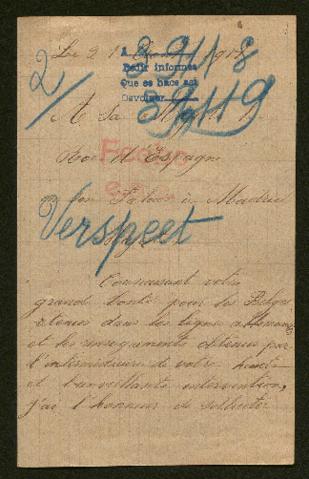 Le 2
A
Pedir informes
Que se hace así
Devolver
2/
39118
39119
A Sa
Roi d'Espagne
en son Palais à Madrid
Verspeet
Connaissant votre
grande bonté pour les Belges
détenus dans les lignes allemandes
et les renseignements obtenus par
l'intermédiaire de votre haute
et bienveillante intervention,
j'ai l'honneur de solliciter